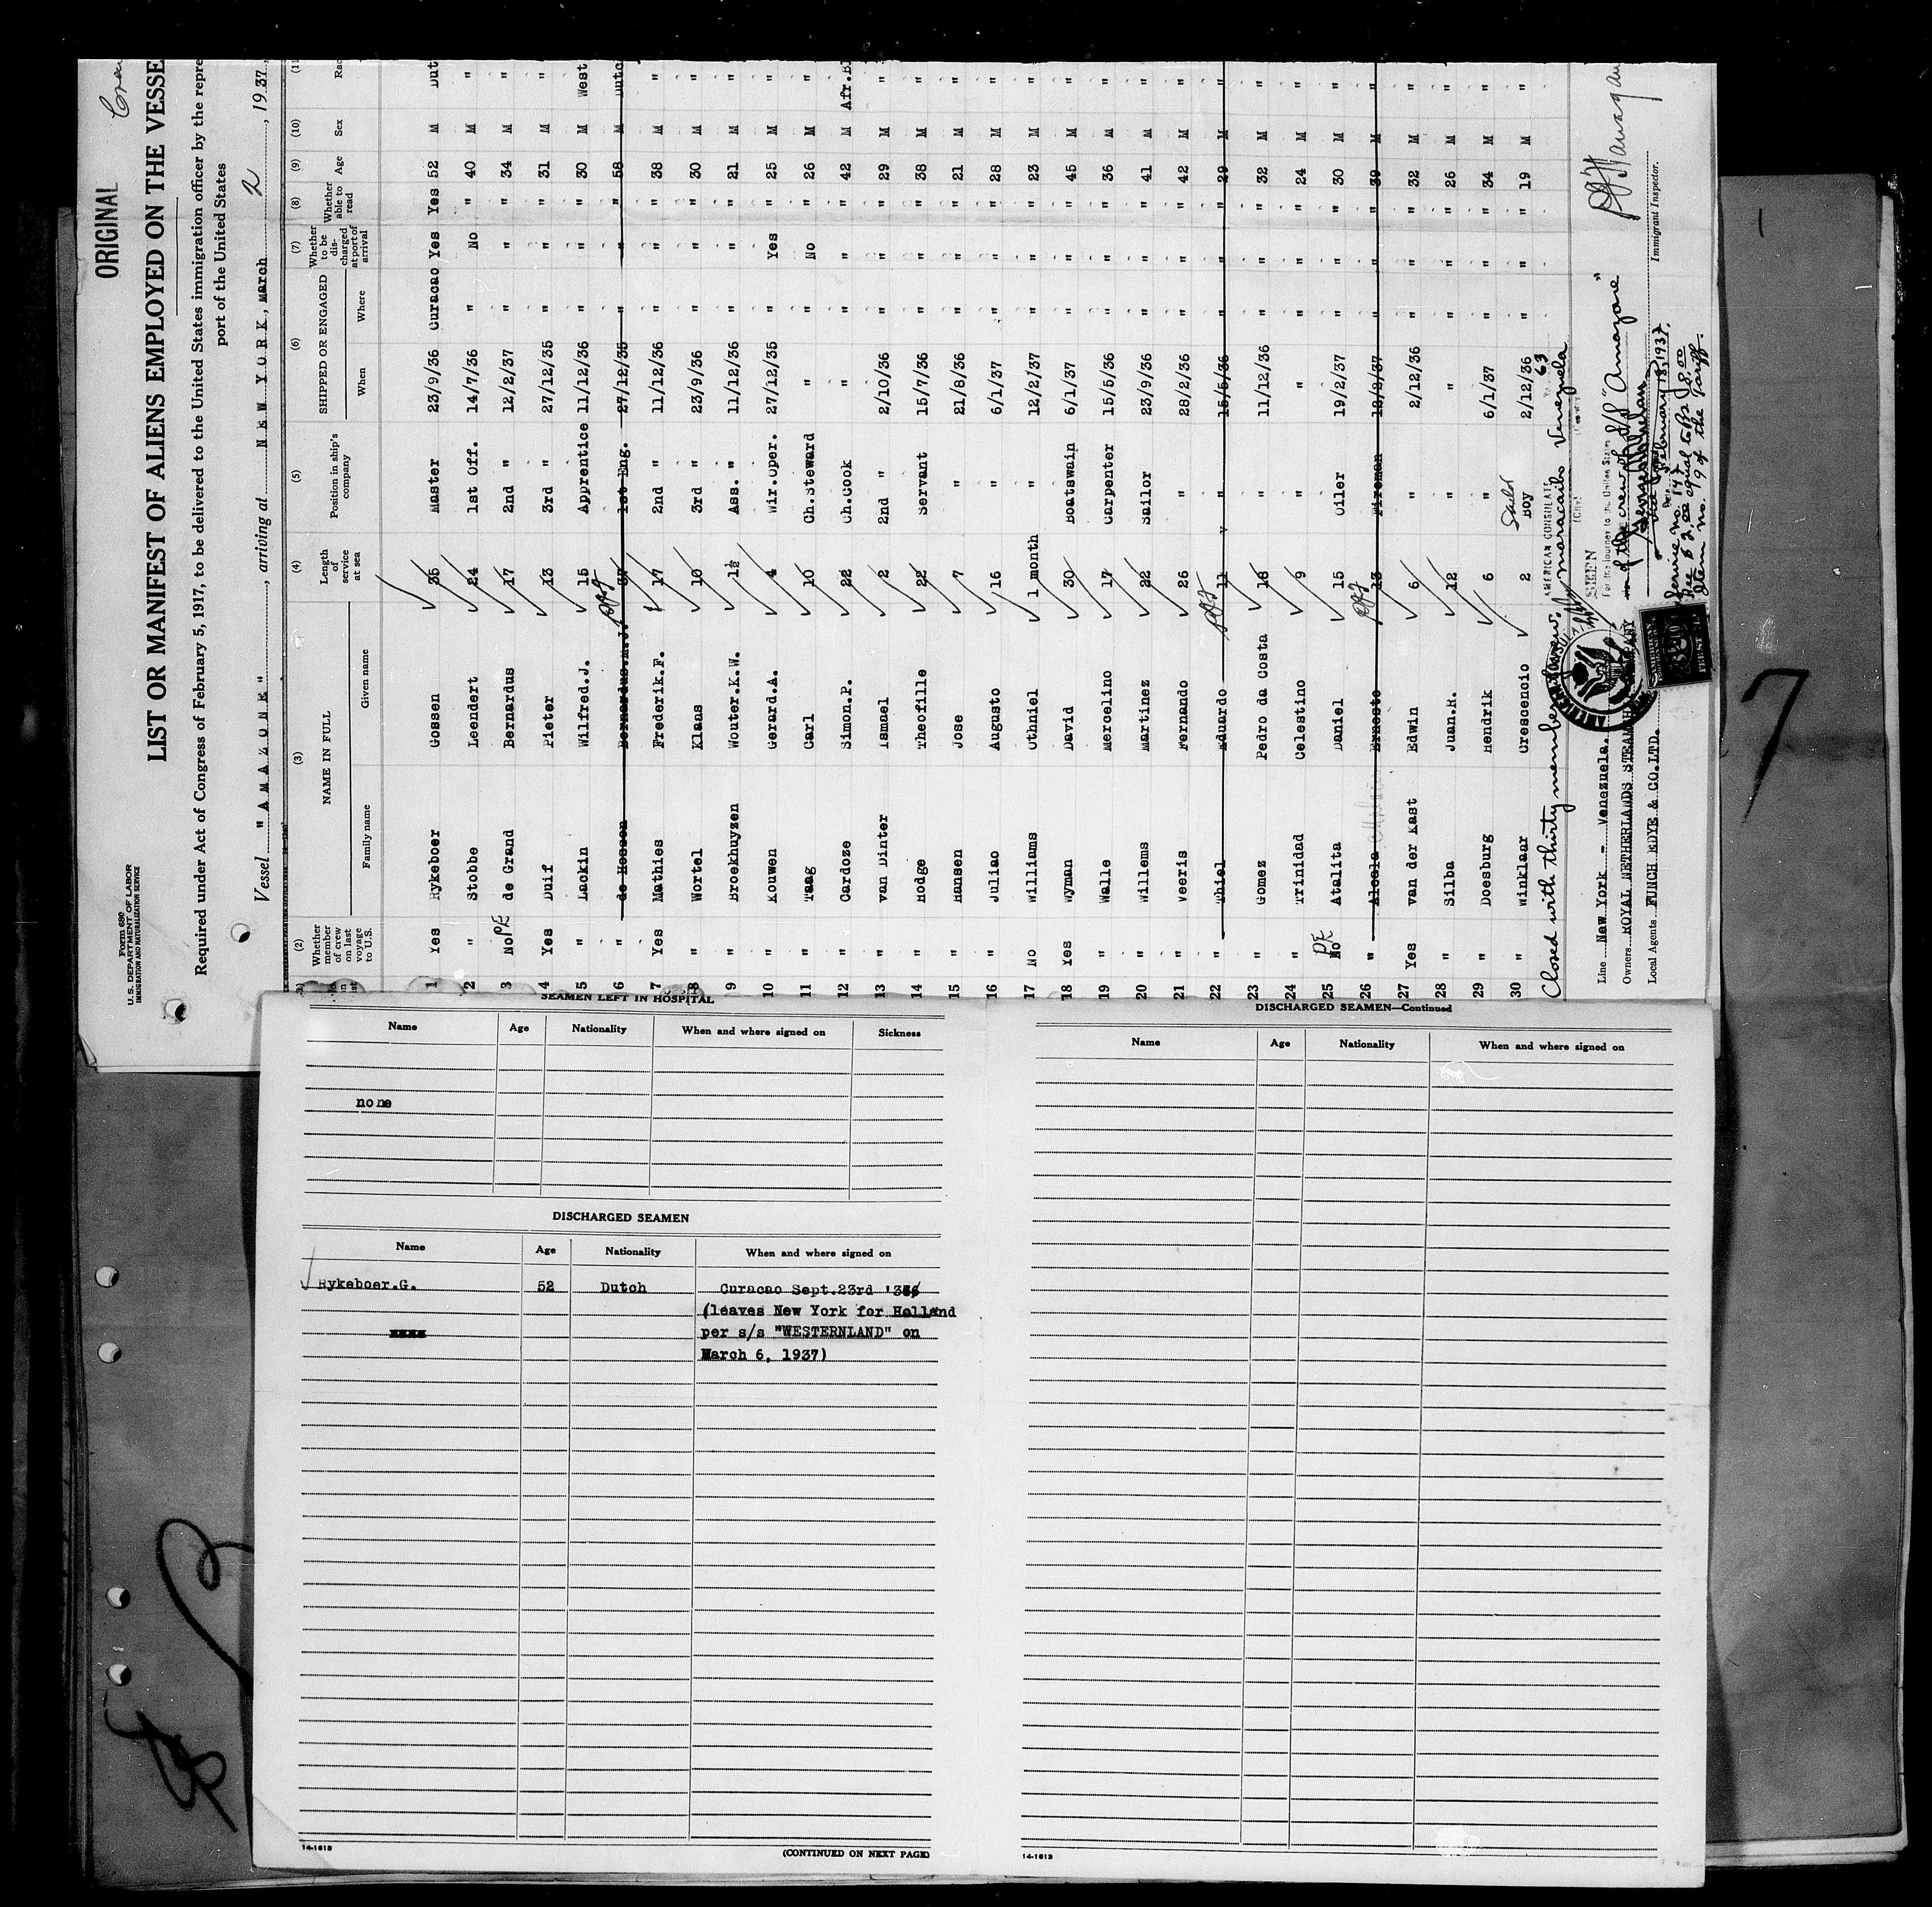 ORIGINAL
Form 680
U.S. DEPARTMENT OF LABOR
IMMIGRATION AND NATURALIZATION SERVICE
LIST OR MANIFEST OF ALIENS EMPLOYED ON THE VESSE
Required under Act of Congress of February 5, 1917, to be delivered to the United States immigration officer by the repre
port of the United States
Vessel "AMAZONE", arriving at NEW YORK, March 2, 1937,
(2) Whether member of crew on last voyage to U.S. (3) NAME IN FULL Family name Given name (4) Length of service at sea (5) Position in ship's company (6) SHIPPED OR ENGAGED When Where (7) Whether to be discharged at port of arrival (8) Whether able to read (9) Age (10) Sex (11 Rac
1 Yes Rykeboer Gossen 35 Master 23/9/36 Curacao Yes Yes 52 M Dut
2 " Stobbe Leendert 24 1st Off. 14/7/36 " No " 40 M "
3 No PE de Grand Bernardus 17 2nd " 12/2/37 " " " 34 M "
4 Yes Duif Pieter 13 3rd " 27/12/35 " " " 31 M "
5 " Lackin Wilfred.J. 15 Apprentice 11/12/36 " " " 30 M West
6 " de Hossen Bernardus.M.J. 37 1st Eng. 27/12/35 " " " 58 M Dutc
7 Yes Mathies Frederik.F. 17 2nd " 11/12/36 " " " 38 M "
8 " Wortel Klaas 10 3rd " 23/9/36 " " " 30 M "
9 " Broekhuyzen Wouter.K.W. 1½ Ass. " 11/12/36 " " " 21 M "
10 " Kouwen Gerard.A. 4 Wir.Oper. 27/12/35 " Yes " 25 M "
11 " Taag Carl 10 Ch.Steward " " No " 26 M "
12 " Cardoze Simon.P. 22 Ch.Cook " " " " 42 M Afr.Bl
13 " van Dinter Ismael 2 2nd " 2/10/36 " " " 29 M "
14 " Hodge Theofille 22 Servant 15/7/36 " " " 38 M "
15 " Hansen Jose 7 " 21/8/36 " " " 21 M "
16 " Juliao Augusto 16 " 6/1/37 " " " 28 M "
17 No Williams Othniel 1 month " 12/2/37 " " " 23 M "
18 Yes Wyman David 30 Boatswain 6/1/37 " " " 45 M "
19 " Walle Mercelino 17 Carpenter 15/5/36 " " " 36 M "
20 " Willems Martinez 22 Sailor 23/9/36 " " " 41 M "
21 " Veeris Fernando 26 " 28/2/36 " " " 42 M "
22 " Thiel Eduardo 11 " 15/5/36 " " " 29 M "
23 " Gomez Pedro da Costa 18 " 11/12/36 " " " 32 M "
24 " Trinidad Celestino 9 " " " " " 24 M "
25 No PE Atalita Daniel 15 Oiler 19/2/37 " " " 30 M "
26 " Alcala Ernesto 13 Fireman 12/2/37 " " " 39 M "
27 Yes van der Kast Edwin 6 " 2/12/36 " " " 32 M "
28 " Silba Juan.H. 12 " " " " " 26 M "
29 " Doesburg Hendrik 6 " 6/1/37 " " " 34 M "
30 " Winklaar Crescencio 2 Sailor Boy 2/12/36 " " " 19 M "
Closed with thirty members of crew. Maracaibo Venezuela
63
AMERICAN CONSULATE
(City) (Country)
SEEN
For the journey to the United States
of the crew of S/S "Amazone"
Vice Consul
February 18, 1937.
Service no. 147
Fee $2.00 equal to Bs 8.00
Item no. 19 of the Tariff.
Line New York - Venezuela.
Owners ROYAL NETHERLANDS STEAMSHIP COMPANY
Local Agents FINCH EDYE & C.O.LTD.
Immigrant Inspector.
7
SEAMEN LEFT IN HOSPITAL
Name Age Nationality When and where signed on Sickness
none
DISCHARGED SEAMEN
Name Age Nationality When and where signed on
Rykeboer.G. 52 Dutch Curacao Sept.23rd '36
(leaves New York for Holland
per s/s "WESTERNLAND" on
March 6, 1937)
14-1613
(CONTINUED ON NEXT PAGE)
DISCHARGED SEAMEN—Continued
Name Age Nationality When and where signed on
14-1613